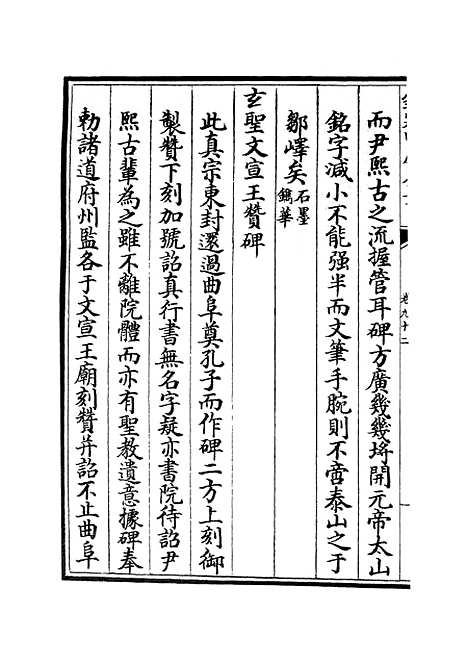 而尹熙古之流握管耳碑方廣幾幾埒開元帝太山
銘字減小不能强半而文筆手腕則不啻泰山之于
鄒嶧矣石墨鐫華
玄聖文宣王贊碑
此真宗東封還過曲阜奠孔子而作碑二方上刻御
製贊下刻加號詔真行書無名字疑亦書院待詔尹
熙古輩為之雖不離院體而亦有聖教遺意據碑奉
勅諸道府州監各于文宣王廟刻贊并詔不止曲阜
卷九十二